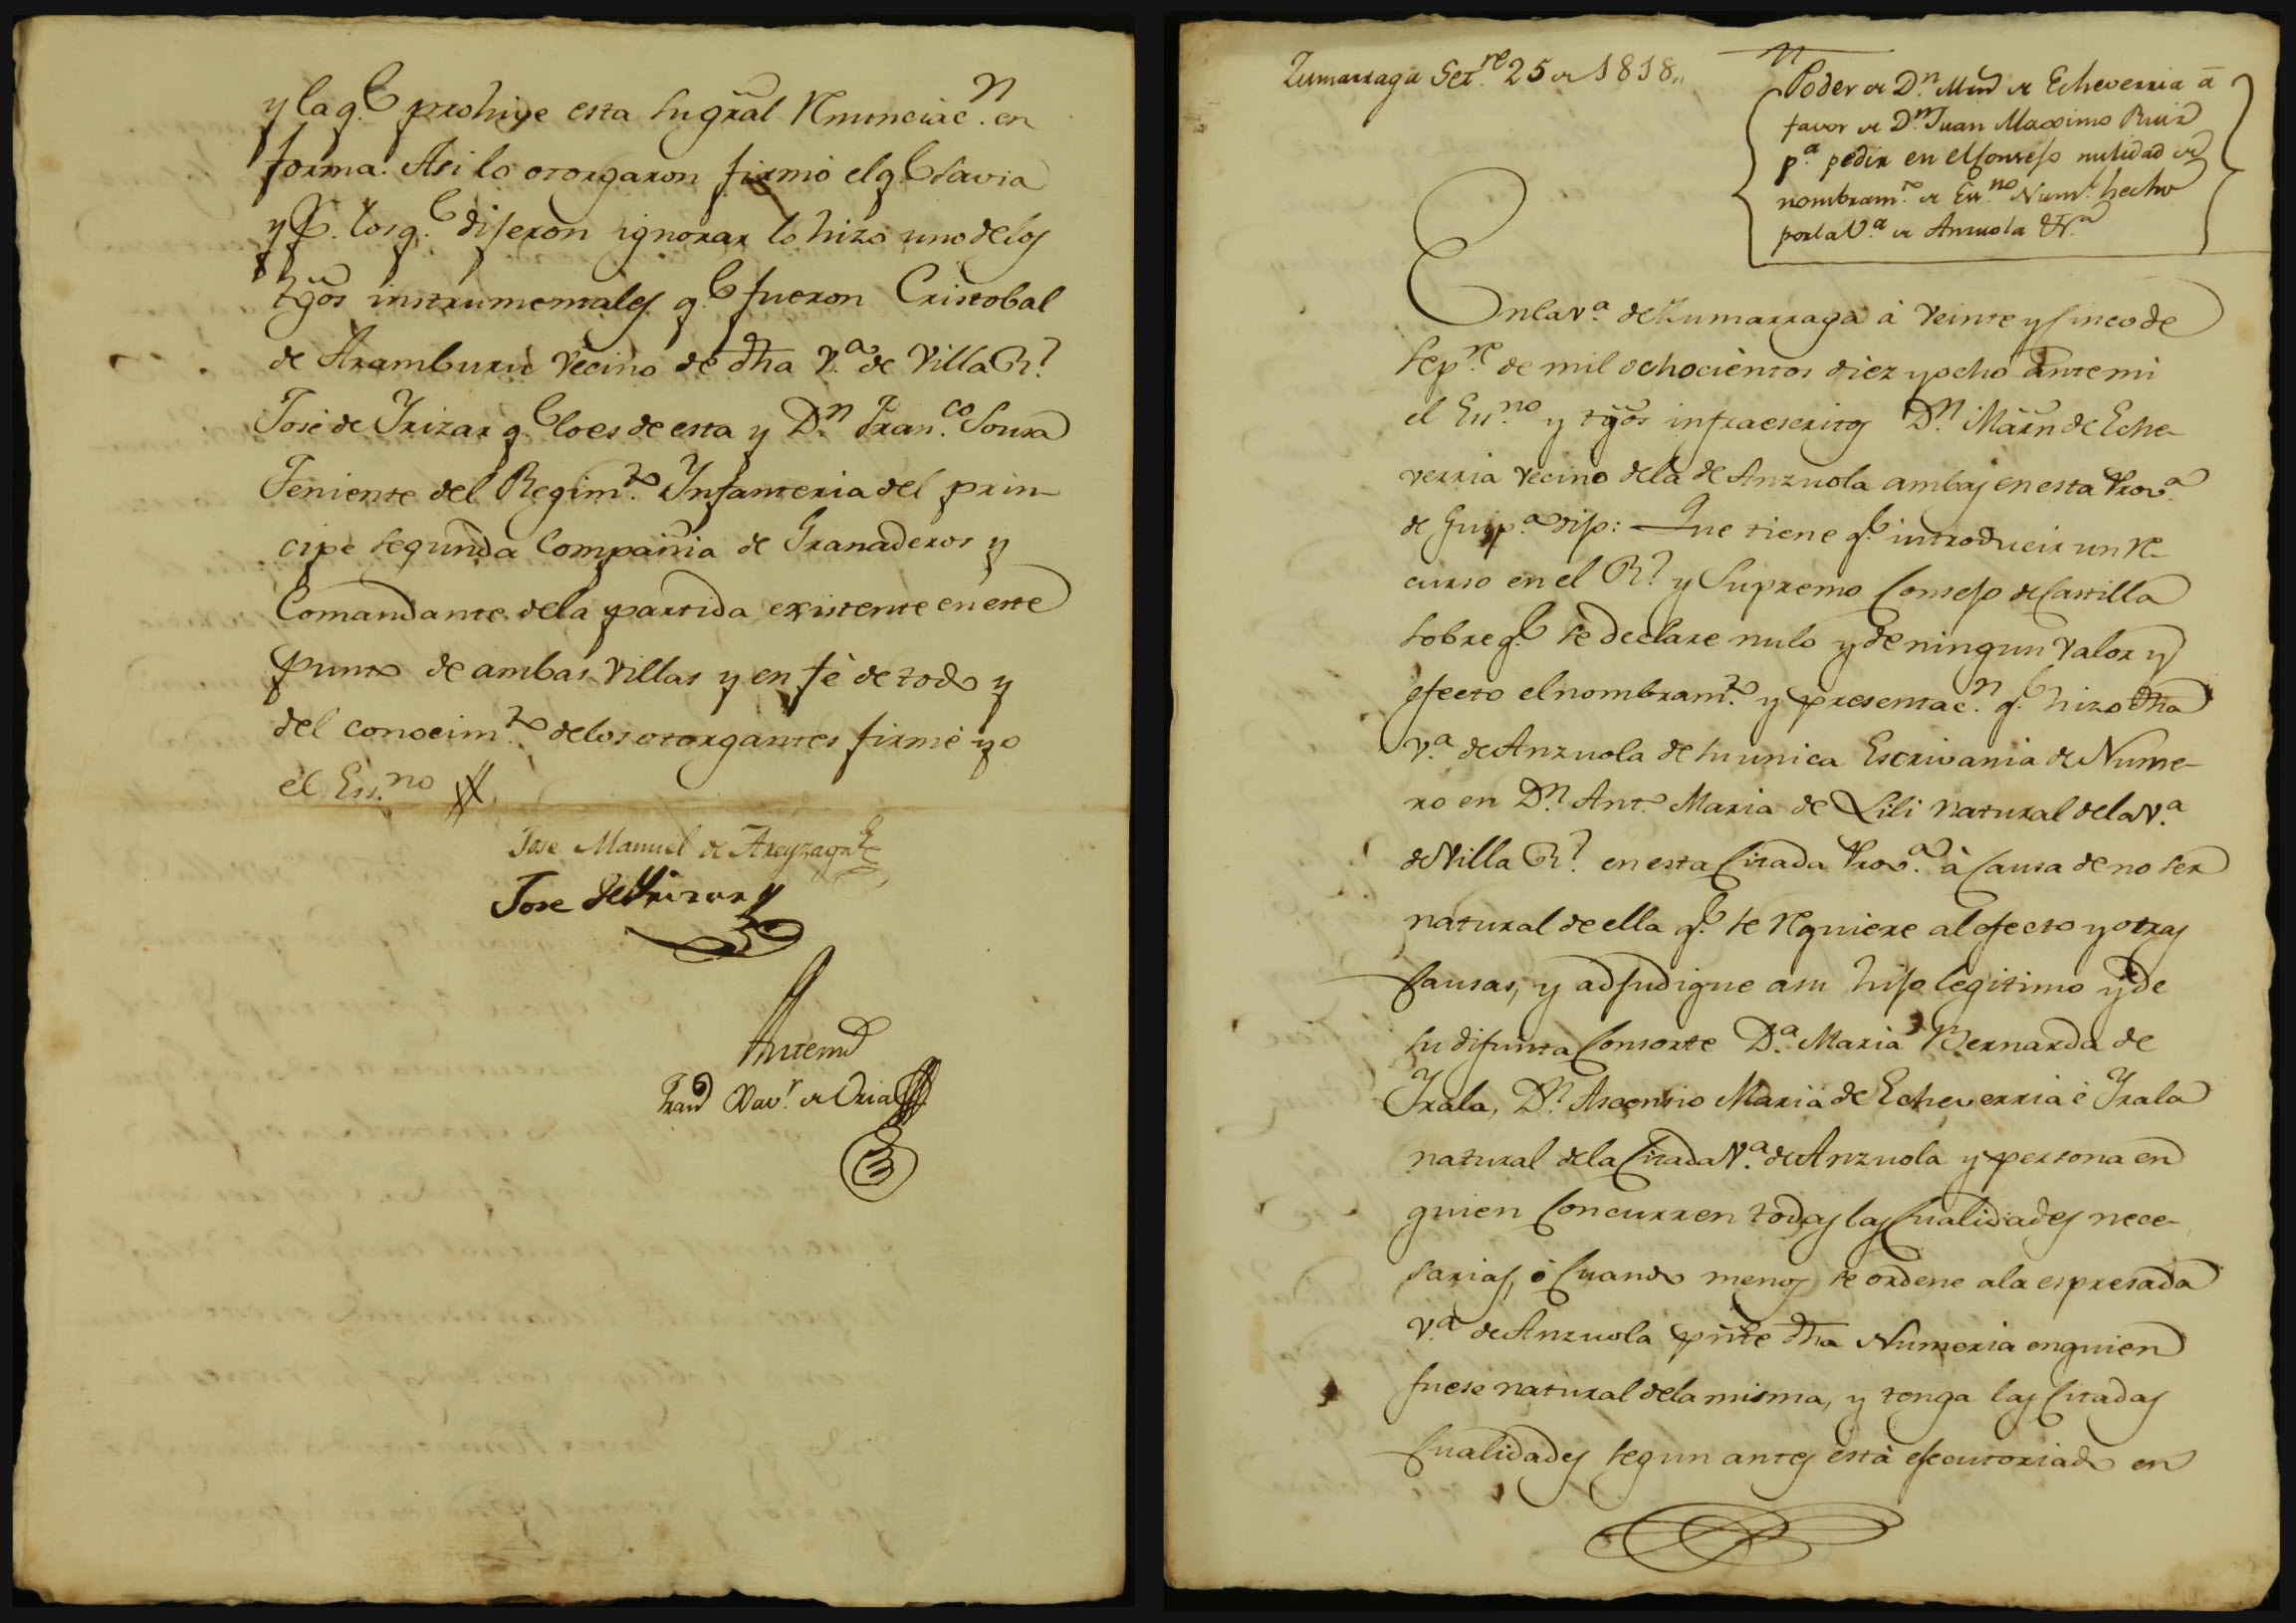 y la q.e prohive esta su gral renunciac.n en
forma. Asi lo otorgaron firmó el q.e savia
y p.r los q.e dijeron ignorar lo hizo uno de los
tgos instrumentales q.e fueron Cristobal
de Aramburu vecino de dha V.a de Villa R.l
José de Yrizar q.e lo es de esta y D.n Fran.co Sousa
Teniente del Regim.to Infanteria del prin-
cipe segunda Compañia de Granaderos y
Comandante dela partida existente en este
punto de ambas villas y en fé de todo y
del conocim.to delos otorgantes firmé yo
el Ess.no
Jose Manuel de Areyzaga
Jose de Yrizar
Antemi
Fran.co Xav.r de Oria
Zumarraga Set.re 25 de 1818.,
Poder de D.n Mrn de Echeverria á
favor de D.n Juan Maximo Ruiz
p.a pedir en el Consejo nulidad del
nombram.to de Ess.no Num.l hecho
por la V.a de Anzuola &.a
En la V.a de Zumarraga á veinte y cinco de
Sep.re de mil ochocientos diez y ocho ante mi
el Ess.no y tgos infraescritos D.n Marn de Eche-
verria vecino dela de Anzuola ambas en esta Prov.a
de Guip.a dijo: Que tiene q.e introducir un re-
curso en el R.l y Supremo Consejo de Castilla
sobre q.e se declare nulo y de ningun valor y
efecto el nombram.to y presentac.n q.e hizo dha
V.a de Anzuola de su unica Escrivania de Nume-
ro en D.n Ant.o Maria de Lili natural dela V.a
de Villa R.l en esta Citada Prov.a à Causa de no ser
natural de ella q.e se requiere al efecto y otras
Causas, y adjudique a su hijo legitimo y de
su difunta Consorte D.a Maria Bernarda de
Yrala, D.n Ascensio Maria de Echeverria é Yrala
natural dela Citada V.a de Anzuola y persona en
quien Concurren todas las Cualidades nece-
sarias, ó Cuando menos se ordene ala espresada
V.a de Anzuola pnte dha Numeria en quien
fuese natural dela misma, y tenga las Citadas
Cualidades segun antes está ejecutoriado en